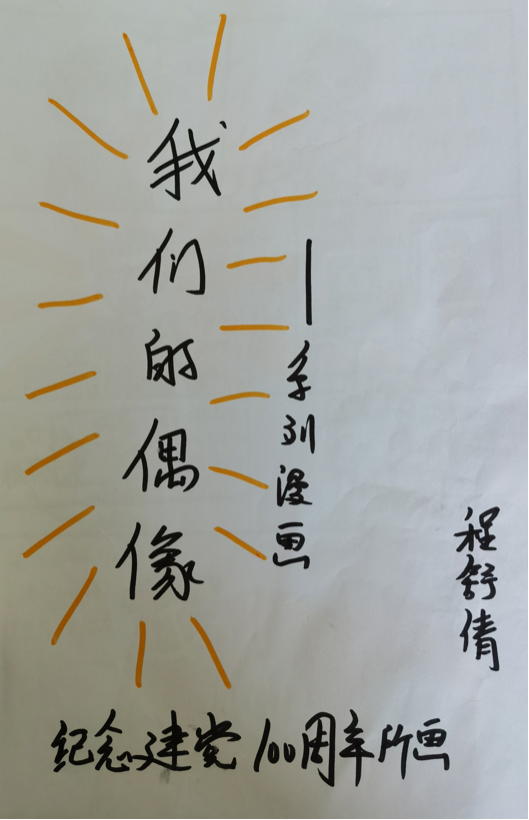 我们的偶像
—系列漫画
程舒倩
纪念建党100周年所画